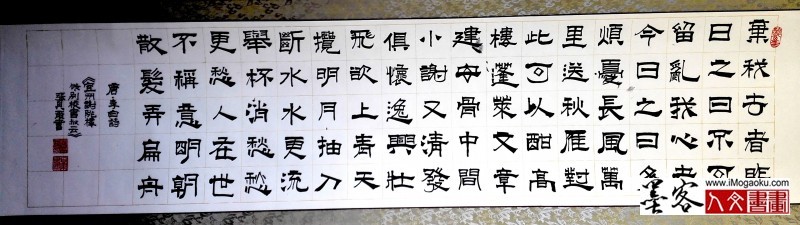 棄我去者昨
日之日不可
留亂我心者
今日之日多
煩憂長風萬
里送秋雁對
此可以酣高
樓蓬萊文章
建安骨中間
小謝又清發
俱懷逸興壯
飛欲上青天
攬明月抽刀
斷水水更流
舉杯消愁愁
更愁人在世
不稱意明朝
散髮弄扁舟
唐李白詩
《宣州謝朓樓
餞別校書叔雲》
書
墨客
www.iMogaoku.com
人文書畫